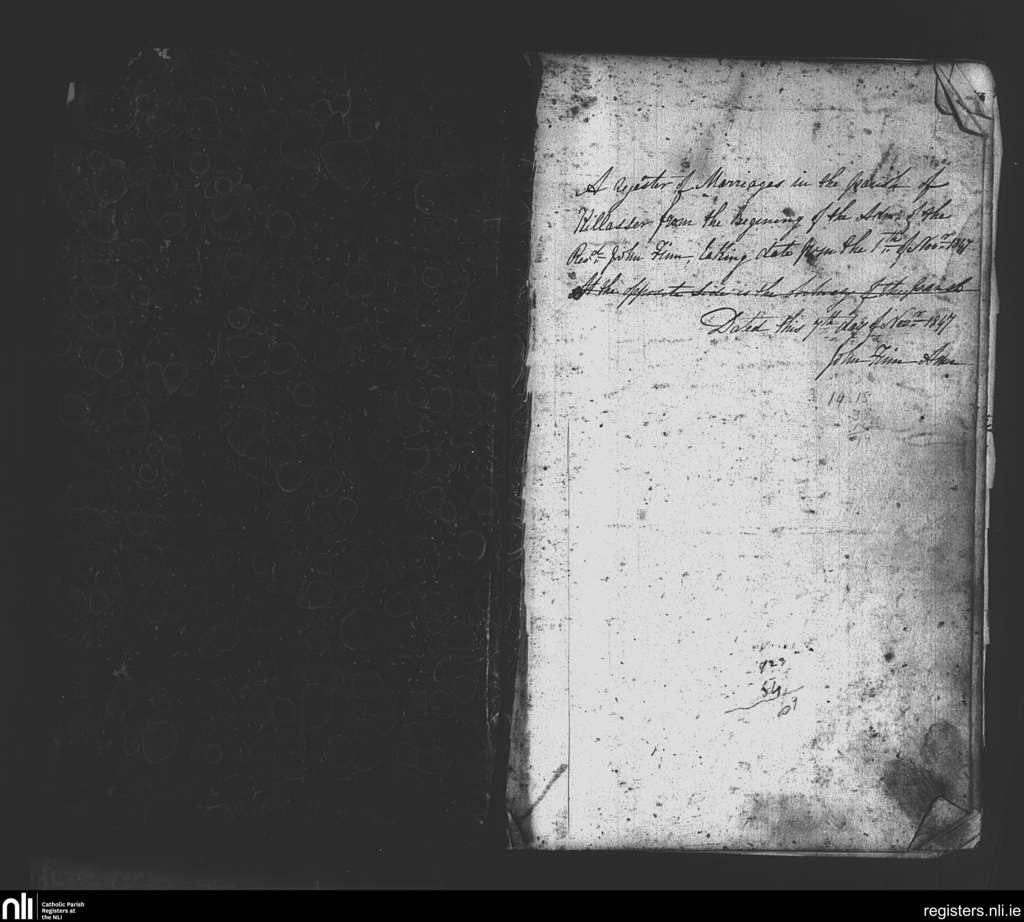 A register of Marriages in the parish of
Killasser from the begining of the Adm. of the
Revd. John Finn, taking date from the 1st of Novr. 1847
At the opposite side is the of the parish
Dated this 7th day of Novr. 1847
John Finn Adm
19 15
923
54
69
nli
Catholic Parish
Registers at
the NLI
registers.nli.ie